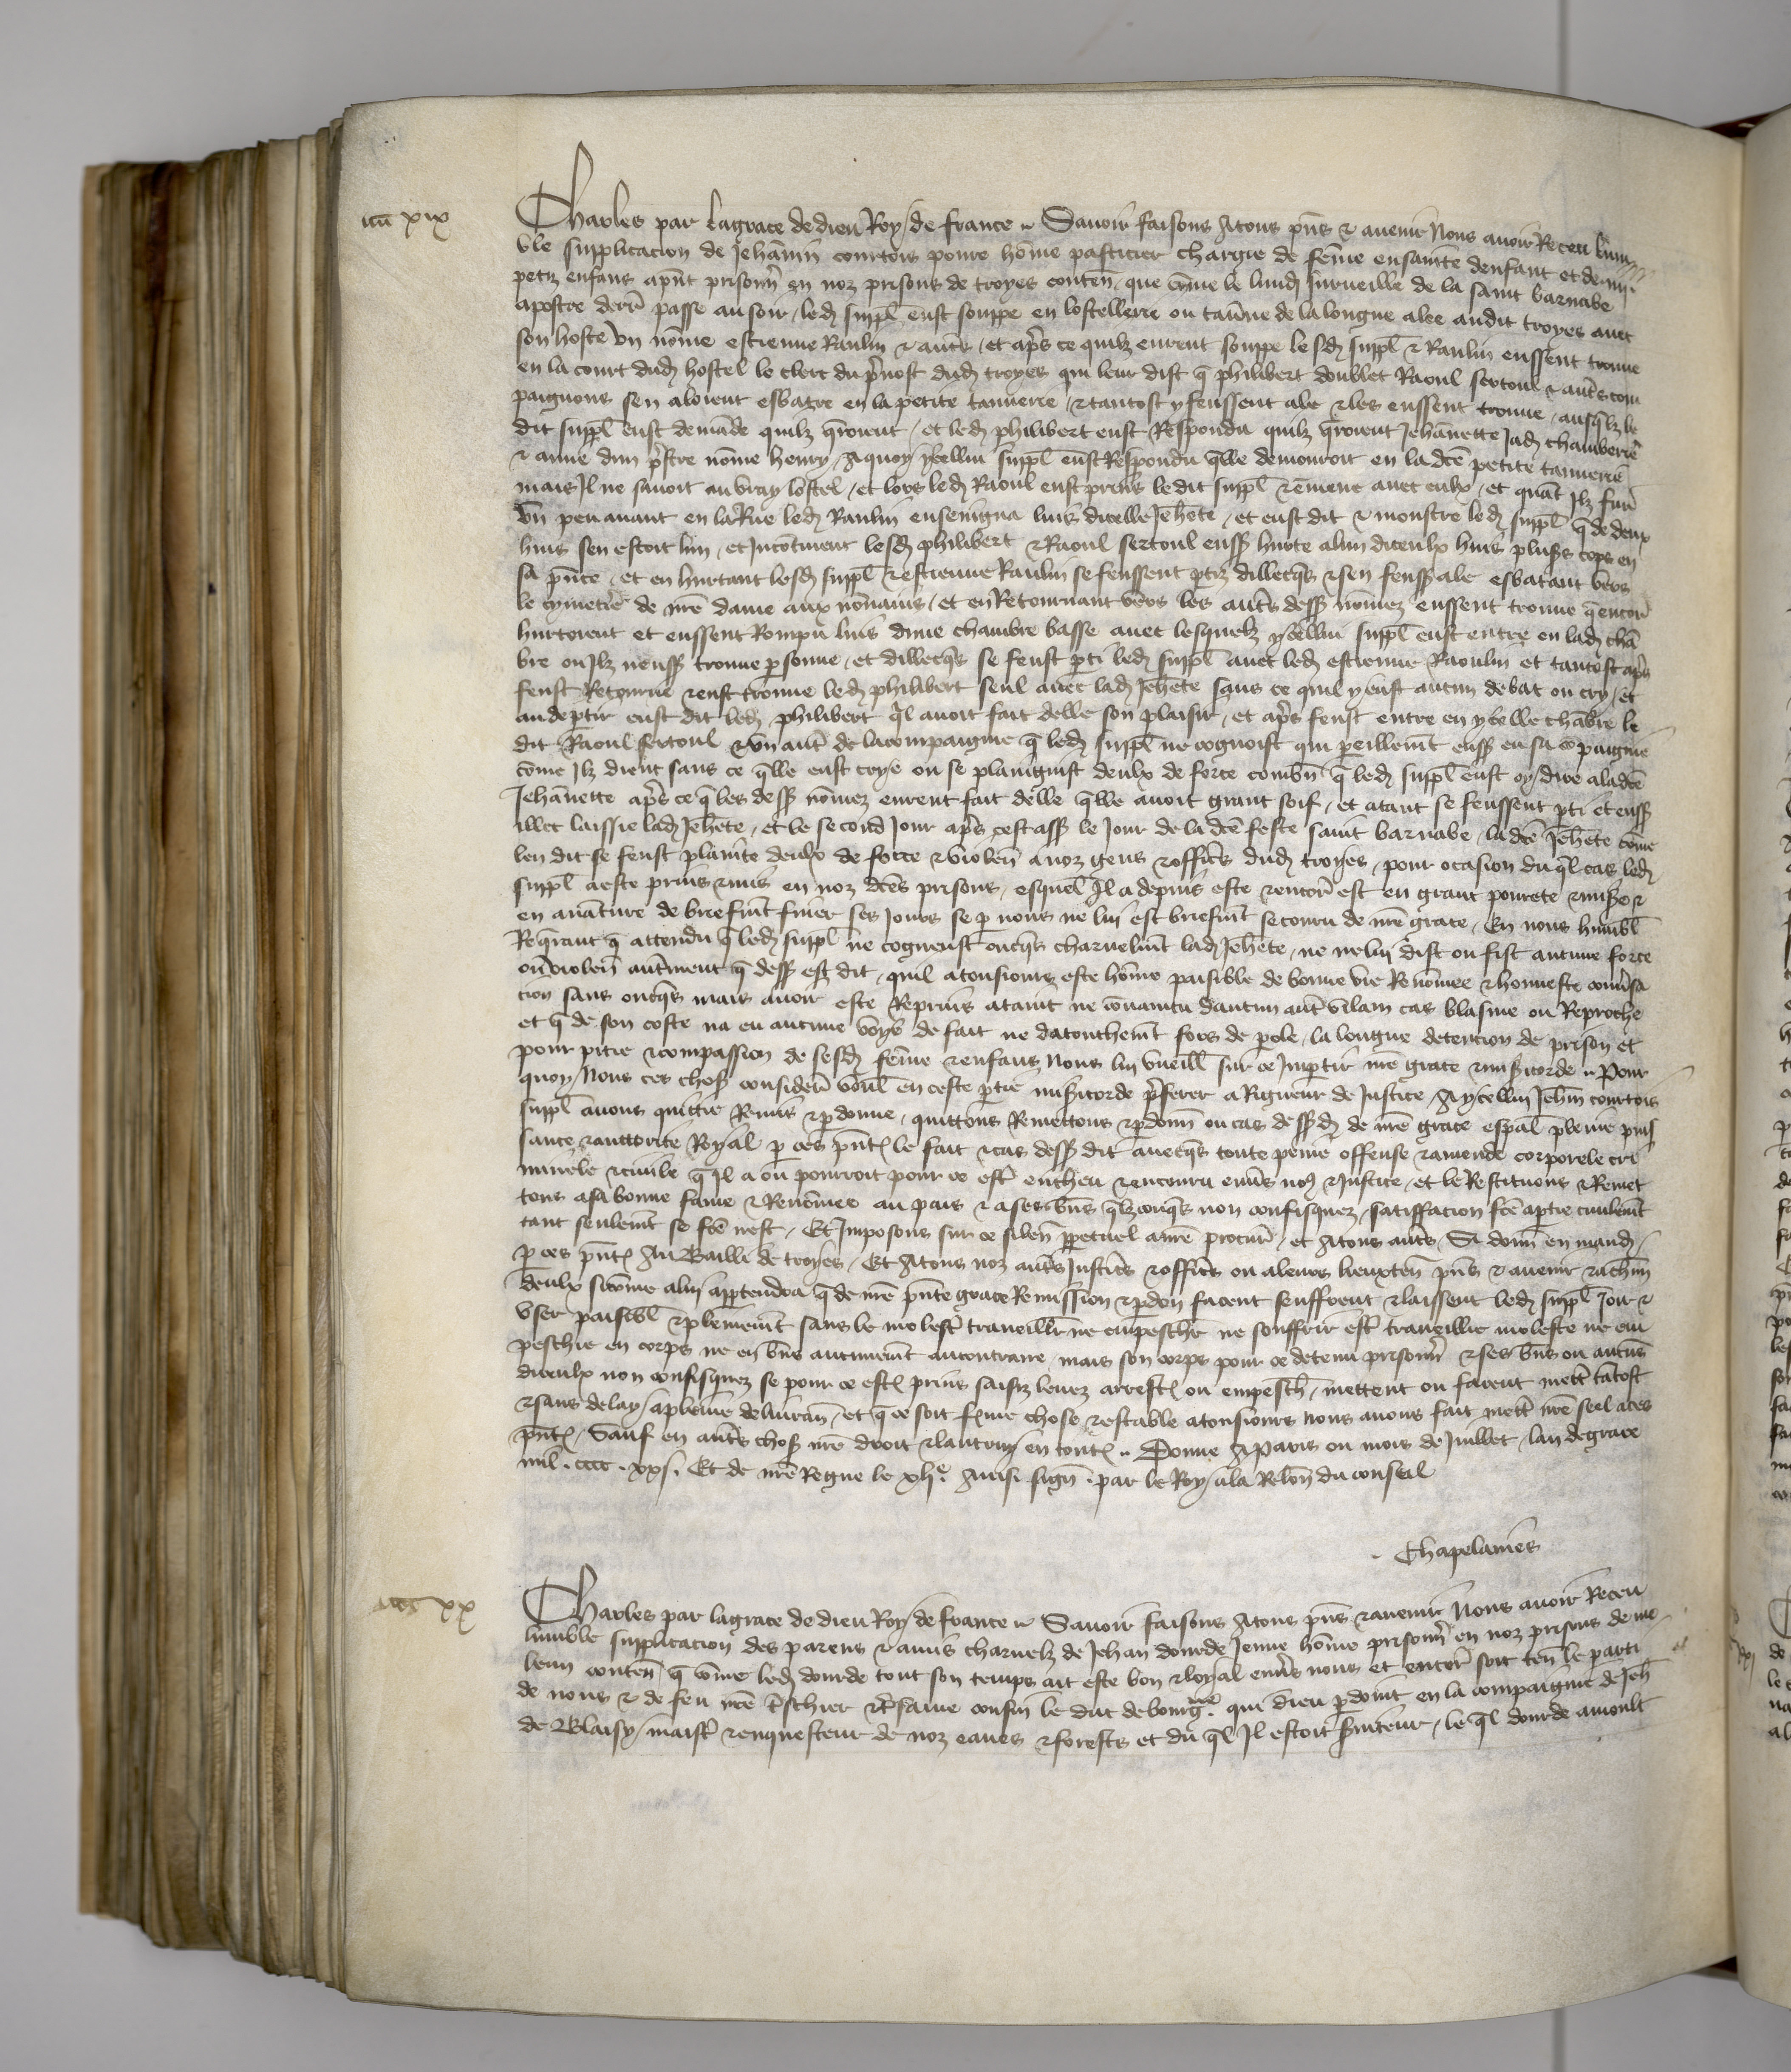 xix
Charles par la grace de dieu Roy de france Savoir faisons A tous pñs & avenir Nous avoir Receu lum
ble supplicacion de Jehãnin courtois povre hõme pasticier chargie de fẽme ensainte denfant et de iiij
petiz enfans apñt prisonñ en noz prisons de troyes conteñ que cõme le lundi surveille de la saint barnabe
apostre derñ passe au soir led suppl eust souppe en lostellerie ou taũne de la longue alee audit troyes avec
son hoste un nõme estienne Raulin & auts et apřs ce quilz eurent souppe lesd suppl & Raulin eussent trouve
en la court dud hostel le clerc du pvost dud troyes qui leur dist q philibert doublet Raoul sertoul & auts com
paignons sen aloient esbatre en la petite tannerie & tantost y feussent ale & les eussent trouve ausqlz le
dit suppl eust demãde quilz qroient et led philibert eust Respondu quilz qroient Jehãnette Jad chamberiẽ
& amie dun pstre nõme henry A quoy ycellui suppl eust Respondu qlle demouroit en la dcẽ petite tannerie
mais Il ne savoit au vray lostel et lors led Raoul eust prins le dit suppl & emene avec eulx et quãt Ilz fuñ
un peu avant en la Rue led Raulin enseigna luis dicelle Jehẽte et eust dit & monstre led suppl q de deux
huis sen estoit lun et Incontinent lesd philibert & Raoul sertoul euss hurte a lun diceulx huis pluss cops en
sa pñce et en hurtant lesd suppl & estienne Raulin se feussent ptiz dillecqs & sen feuss ale esbatant vers
le cymetiẽ de ñre dame aux nonnains et en Retournant vers les auts dess nõmez eussent trouve q encoñ
hurtoient et eussent Rompu luis dune chambre basse avec lesquelz ycellui suppl eust entre en lad chã
bre ou Ilz neuss trouve psonne et dillecqs se feust pti led suppl avec led estienne Raoulin et tantost apřs
feust Retourne & eust trouve led philibert seul avec lad Jehẽte sans ce quil y eust aucun debat ou cry et
au deptir eust dit led philibert ql avoit fait delle son plaisir et apřs feust entre en ycelle chãbre le
dit Raoul sertoul & un aut de la compaignie q led suppl ne cognoist qui peillemt euss eu sa cõpaignie
cõme Ilz dient sans ce qlle eust crye ou se plainguist deulx de force combñ q led suppl eust oy dire a la dcẽ
Jehãnette apřs ce q les dess nõmez eurent fait delle qlle avoit grant soif et atant se feussent pti et euss
illec laissie lad Jehẽte et le second Jour apřs cestass le Jour de la dcẽ feste saint barnabe la dcẽ Jehẽte cõme
len dit se feust plainte deulx de force & violeñ a noz gens & officřs dud troyes pour ocasion du ql cas led
suppl a este prins & mis en noz dcẽs prisons esquel Il a depuis este & encoř est en grant povrete & misere &
en avãture de briefmt finer ses Jours se p nous ne lui est briefmt secouru de ñre grace En nous humbl
Reqrant q attendu q led suppl ne cogneust oncqs charnelmt lad Jehẽte ne ne lui dist ou fist aucune force
ou violeñ autment q dess est dit quil a tousiours este hõme paisible de bonne vie Renõmee & honneste convsa
cion sans oncqs mais avoir este Reprins ataint ne convaincu daucun aut vilain cas blasme ou Reproche
et q de son coste na eu aucune voye de fait ne datouchemt fors de pole la longue detencion de prison et
pour pitie & compassion de sesd fẽme & enfans Nous lui vueill sur ce Impartir ñre grace & misicorde Pour
quoy Nous ces choss considerã voul en ceste ptie misicorde pferer a Rigueur de Justice A ycellui Jehñ courtois
suppl avons quittie Remis & pdonne quittons Remettons & pdonñ ou cas dessd de ñre grace espal pleine puis
sance & auctorite Royal p ces pñt le fait & cas dess dit avecqs toute peine offense & amende corporele cri
minele & civile q Il a ou pourroit pour ce est encheu & encouru envs no & Justice et le Restituons & Remet
tons a sa bonne fame & Renõmee au pais & a ses bñs qlzconqs non confisquez satisfacion fcẽ a ptie civilemt
tant seulemt se fcẽ nest Et Imposons sur ce sileñ ppetuel a ñre procuř et A tous auts Si donñ en mand
p ces pñt Au Bailli de troyes Et A tous noz auts Justicřs & officřs ou a leurs lieuxteñ pñs & avenir & a chũ
deulx si cõme a lui apptendra q de ñre pñte grace Remission & pdon facent seuffrent & laissent led suppl Joir &
user paisibl & plenemt sans le molest traveillr ne empeschr ne souffrir est traveillie moleste ne em
peschie en corps ne en bñs aucunemt au contraire mais son corps pour ce detenu prisonñ & ses bñs ou aucũs
diceulx non confisquez se pour ce est prins saisiz levez arrest ou empesch mettent ou facent mett tãtost
& sans delay a pleine delivrañ et q ce soit fme chose & estable a tousiours Nous avons fait mett ñre seel a ces
pñt Sauf en auts choss ñre droit & lautruy en tout Donne A Paris ou mois de Juillet lan de grace
mil cccc xxj Et de ñre Regne le xlje Ainsi sign par le Roy a la Relon du conseil
Chapelaines
xx
Charles par la grace de dieu Roy de france Savoir faisons A tous pñs & avenir Nous avoir Receu
lumble supplicacion des parens & amis charnelz de Jehan dourde Jeune hõme prisonñ en noz prisons de me
leun conteñ q cõme led dourde tout son temps ait este bon & loyal envs nous et encor soit teñ le parti
de nous & de feu ñre tschier & tsame cousin le duc de bourge qui dieu pdoint en la compaignie de Jeh
de Blaisy maist & enquesteur de noz eaues & forests et du ql Il estoit sviteur le ql dourde a moult